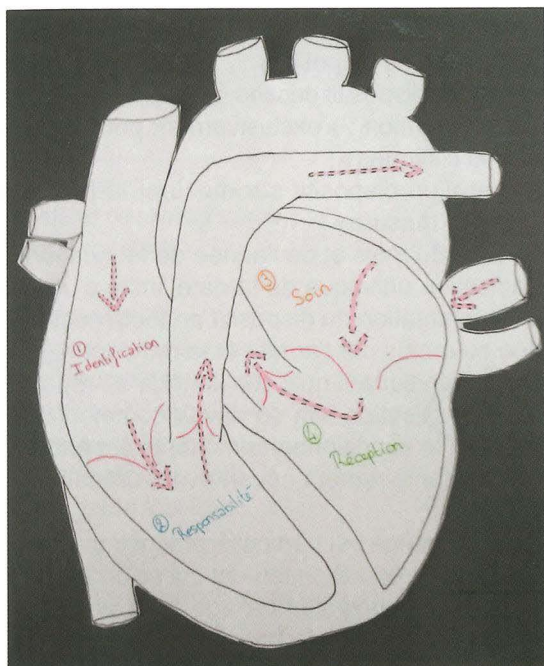 ①
Identification
② Responsabilité
③ Soin
④
Réception